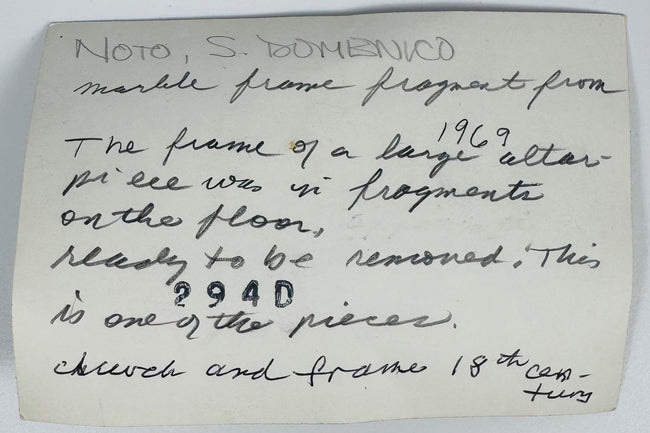 NOTO, S. DOMENICO
marble frame fragment from
1969
The frame of a large altar-
piece was in fragments
on the floor,
ready to be removed. This
294D
is one of the pieces.
church and frame 18th cen-
tury